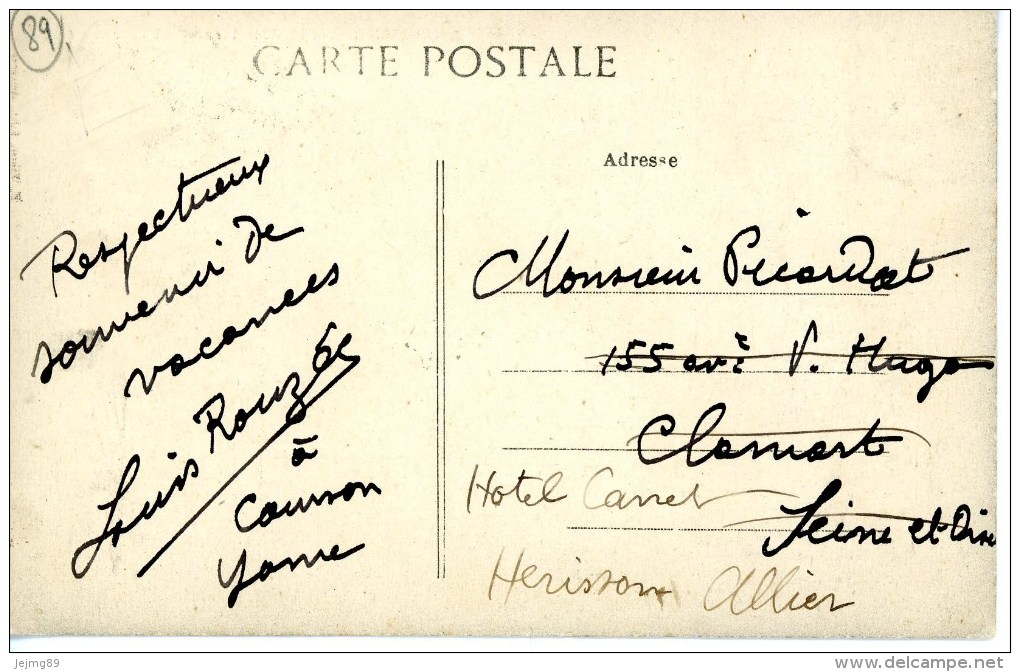 89
CARTE POSTALE
Adresse
Respectueux
souvenir de
vacances
Louis Rouzés
à
Courson
Yonne
Monsieur Picardat
155 ave V. Hugo
Clamart
Seine et Oise
Hotel Carret
Herisson Allier
Jejmg89
www.delcampe.net